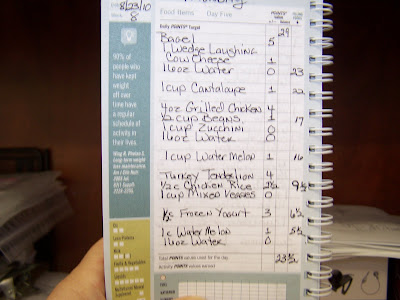 8/23/10
Week 8
Food Items Day Five
POINTS®
Daily POINTS® Target 29
Bagel 5
1 Wedge Laughing
Cow Cheese 1
16oz Water 0 23
1 cup Cantaloupe 1 22
4oz Grilled Chicken 4
1/2 cup Beans 1 17
1 cup Zucchini 0
16oz Water 0
1 cup Water Melon 1 16
Turkey Tenderlion 4
1/2 c Chicken Rice 2 1/2 9 1/2
1 cup Mixed Veggies 0
1/2 c Frozen Yogurt 3 6 1/2
1c Water Melon 1 5 1/2
16oz Water 0
Total POINTS values used for the day 23 1/2
Activity POINTS values earned
90% of
people who
have kept
weight
off over
time have
a regular
schedule of
activity in
their lives.